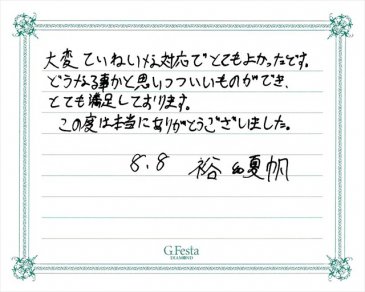 大変ていねいな対応でとてもよかったです。
どうなる事かと思いつついいものができ、
とても満足しております。
この度は本当にありがとうございました。
8.8 裕 夏帆
G.Festa
DIAMOND